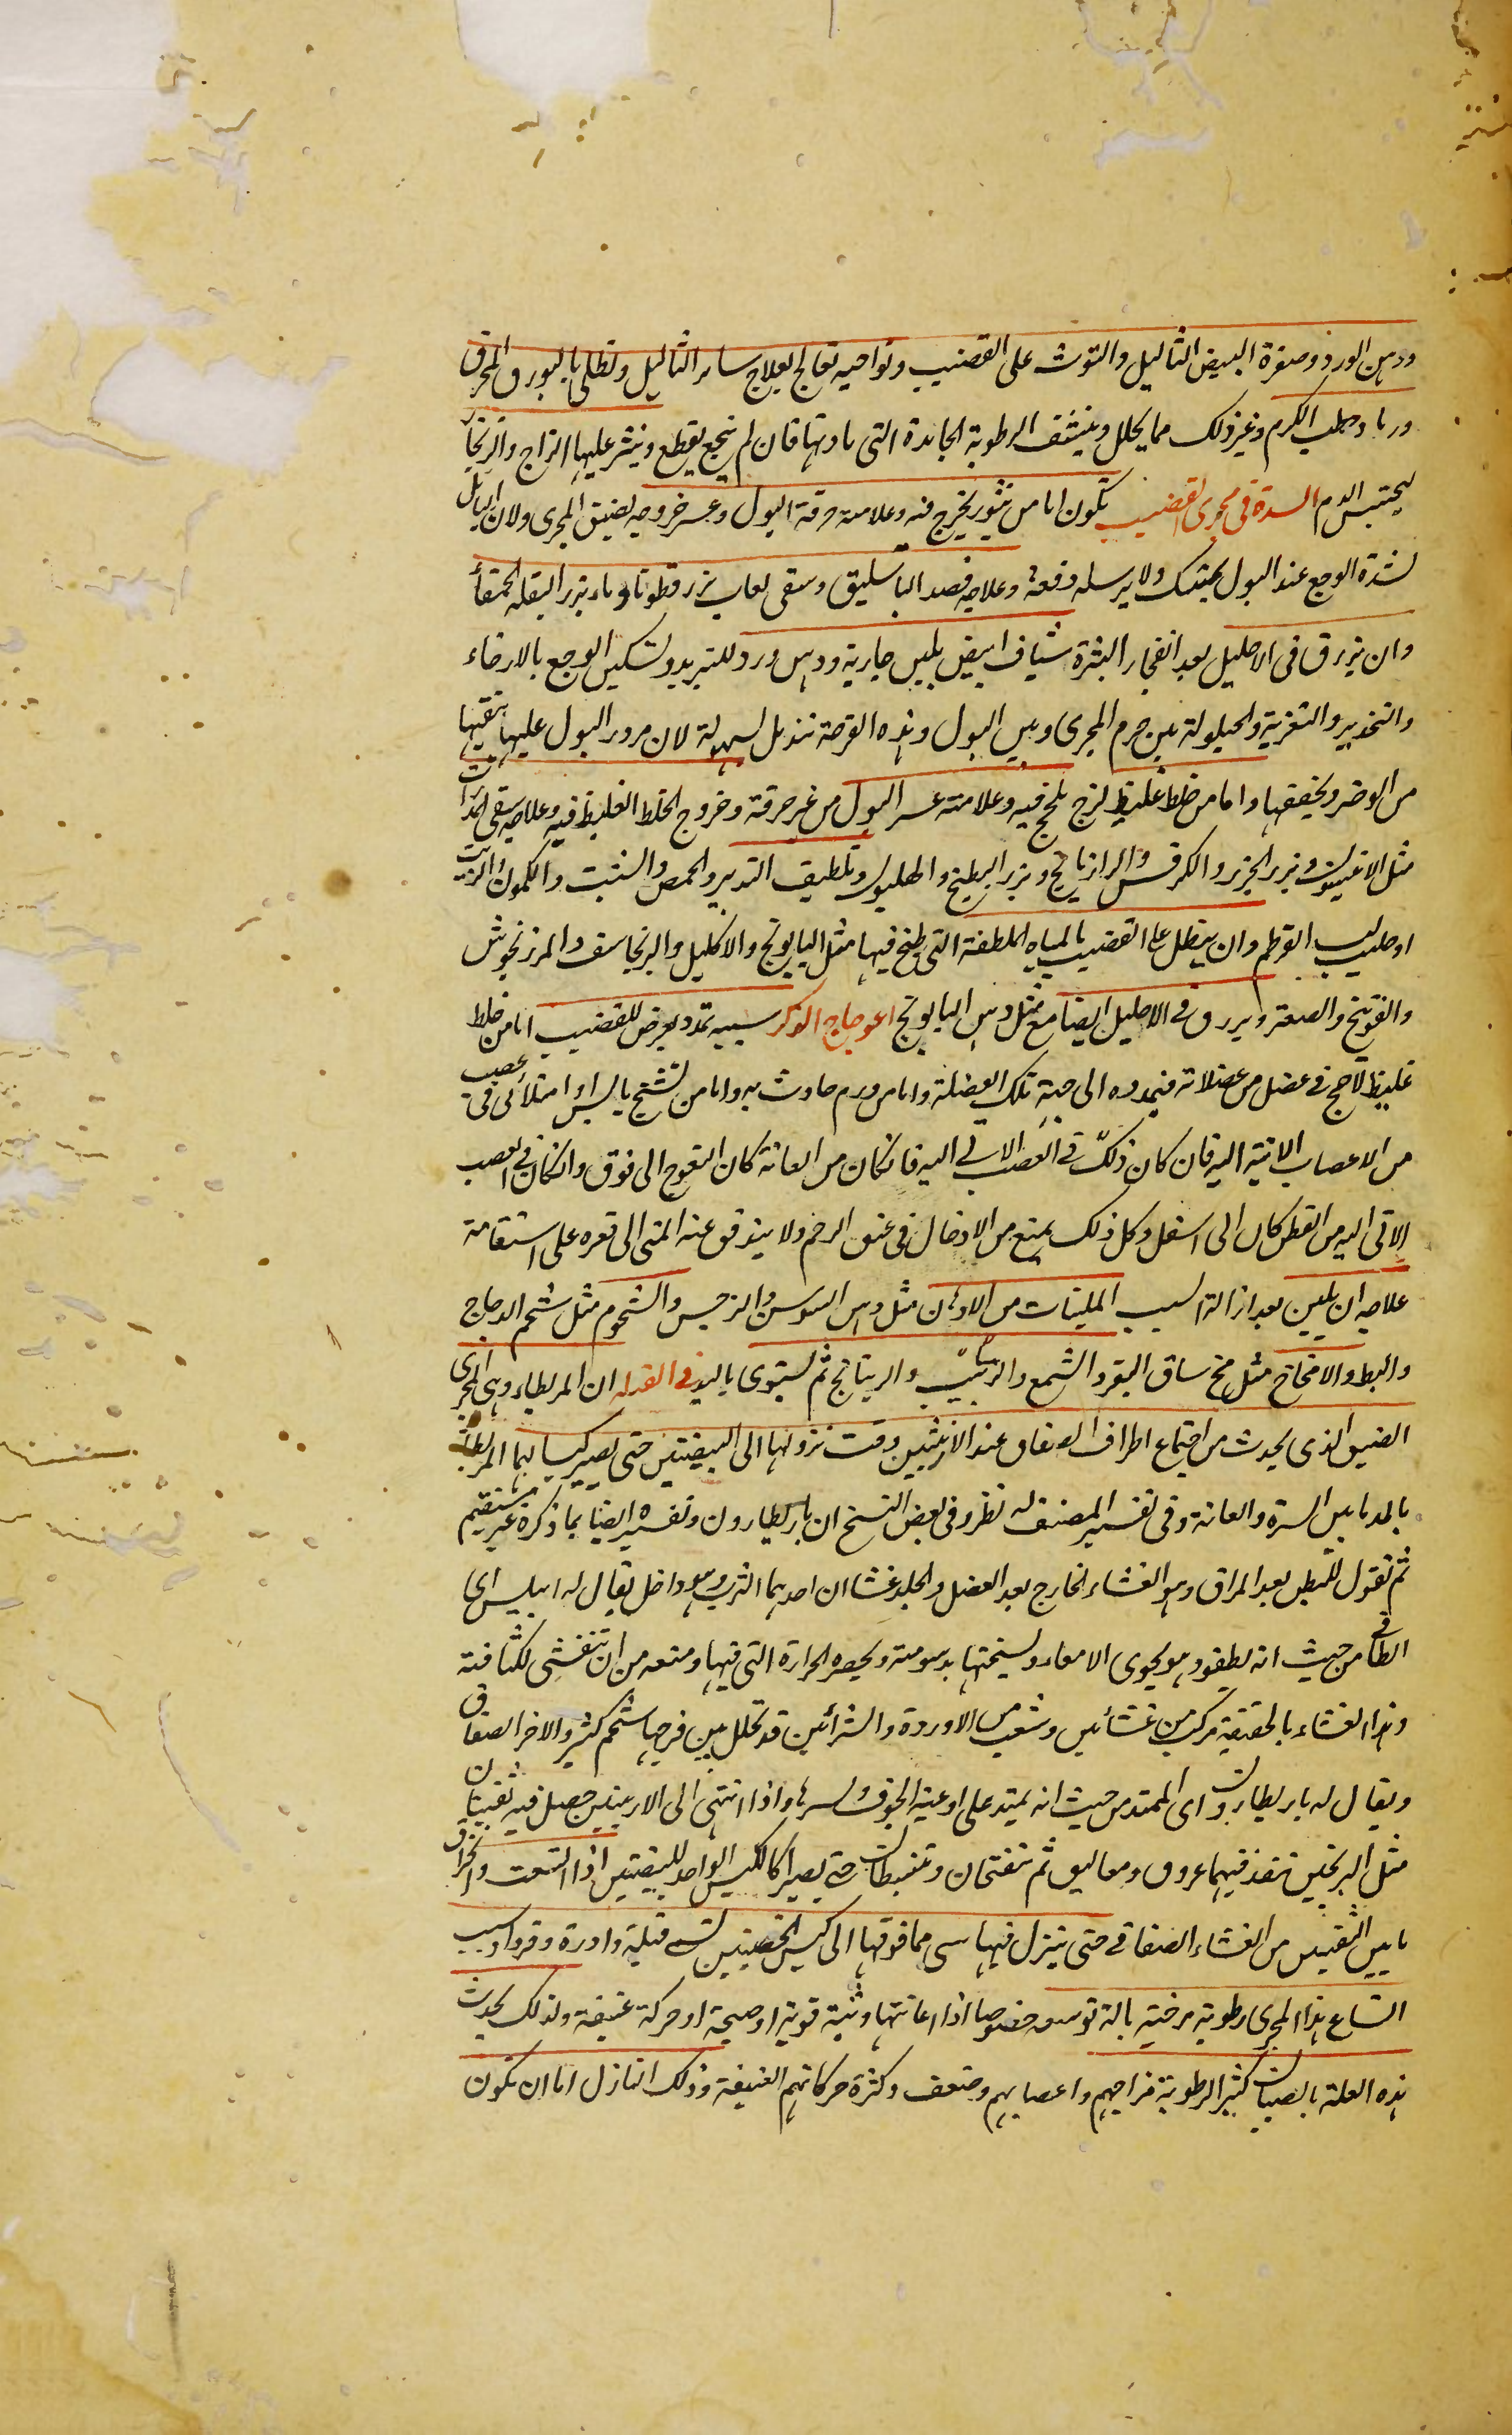 ودهن الورد وصفرة البيض الثاليل والتوث على القضيب ونواحيه تعالج بعلاج سائر الثاليل وتطلى بالبورق المحرق
ورماد حطب الكرم وغير ذلك مما يحلل وينشف الرطوبة الجامدة التى مادتها فان لم ينجع يقطع وينثر عليها الزاج والزنجار
ليحتبس الدم السدة فى مجرى القضيب تكون اما من بثور يخرج فيه وعلامته حرقة البول وعسر خروجه لضيق المجرى ولان البائل
لشدة الوجع عند البول يمسك ولا يرسله دفعة وعلاجه فصد الباسليق وسقى لعاب بزر قطونا وماء بزر البقلة الحمقاء
وان يزرق فى الاحليل بعد انفجار البثرة شياف ابيض بلبن جارية ودهن ورد للتبريد وتسكين الوجع بالارخاء
والتخدير والتغرية والحيلولة بين جرم المجرى وبين البول وهذه القرحة تندمل بسهولة لان مرور البول عليها ينقيها
من الوضر ويجففها واما من خلط غليظ لزج يلحج فيه وعلامته عسر البول من غير حرقة وخروج الخلط الغليظ فيه وعلاجه سقى المدرات
مثل الافتيمون وبزر الجزر والكرفس والرازيانج وبزر البطيخ والهليون وتلطيف التدبير والحمص والشبت والكمون والزيت
او حليب لب القرطم وان ينطل على القضيب بالمياه الملطفة التى طبخ فيها مثل البابونج والاكليل والبرنجاسف والمرزنجوش
والفوتنج والصعتر ويزرق فى الاحليل ايضا مع مثل دهن البابونج اعوجاج الذكر سببه تمدد يعرض للقضيب اما من خلط
غليظ لاحج فى عضل من عضلاته فيمدده الى جهة تلك العضلة واما من ورم حادث به واما من تشنج يابس او امتلائى فى عصب
من الاعصاب الاتية اليه فان كان ذلك فى العصب الاتى اليه فان كان من العانة كان التعوج الى فوق وان كان فى العصب
الاتى اليه من القطن كان الى اسفل وكل ذلك يمنع من الادخال فى عنق الرحم ولا يندفق عنه المنى الى قعره على استقامة
علاجه ان يلين بعد ازالة السبب الملينات من الادهان مثل دهن السوسن والنرجس والشحوم مثل شحم الدجاج
والبط والامخاخ مثل مخ ساق البقر والشمع والزيت والريتانج ثم يستوى باليد فى القيله ان المريطاء وهى المجرى
الضيق الذى يحدث من اجتماع اطراف الصفاق عند الاربيتين وقت نزولها الى البيضتين حتى يصير كيسا لهما المريطاء
بالمد ما بين السرة والعانة وفى تفسير المصنف له نظر وفى بعض النسخ ان باريطارون وتفسيره ايضا بما ذكره غير مستقيم
ثم نقول للبطن بعد المراق وهو الغشاء الخارج بعد العضل والجلد غشاان احدهما الثرب وهو داخل يقال له ابيلس اى
الطافى من حيث انه يطفو وهو يحوى الامعاء ويسخنها بدسومته ويحصر الحرارة التى فيها ومنعه من ان تنفش لكثافته
وهذا الغشاء بالحقيقة مركب من غشائين وشعب من الاوردة والشرائين قد تخلل بين فرجها شحم كثير والاخر الصفاق
ويقال له باريطارون اى الممتد من حيث انه يمتد على اوعية الجوف باسرها واذا انتهى الى الاربيتين حصل فيه ثقبتان
مثل البربخين تنفذ فيهما عروق ومعاليق ثم تنفتحان وتنبسطان حتى يصيرا كالكيس الواحد للبيضتين اذا اتسعت وانخرق
ما بين الثقبتين من الغشاء الصفاقى حتى ينزل فيها شى مما فوقها الى كيس الخصيتين تسمى قيلة وادرة وقروا وسبب
اتساع هذا المجرى رطوبة مرخية بالة توسعه خصوصا اذا اعانتها وثبة قوية او صيحة او حركة عنيفة ولذلك يحدث
هذه العلة بالصبيان كثير الرطوبة مزاجهم واعصابهم وضعف وكثرة حركاتهم العنيفة وذلك النازل اما ان تكون